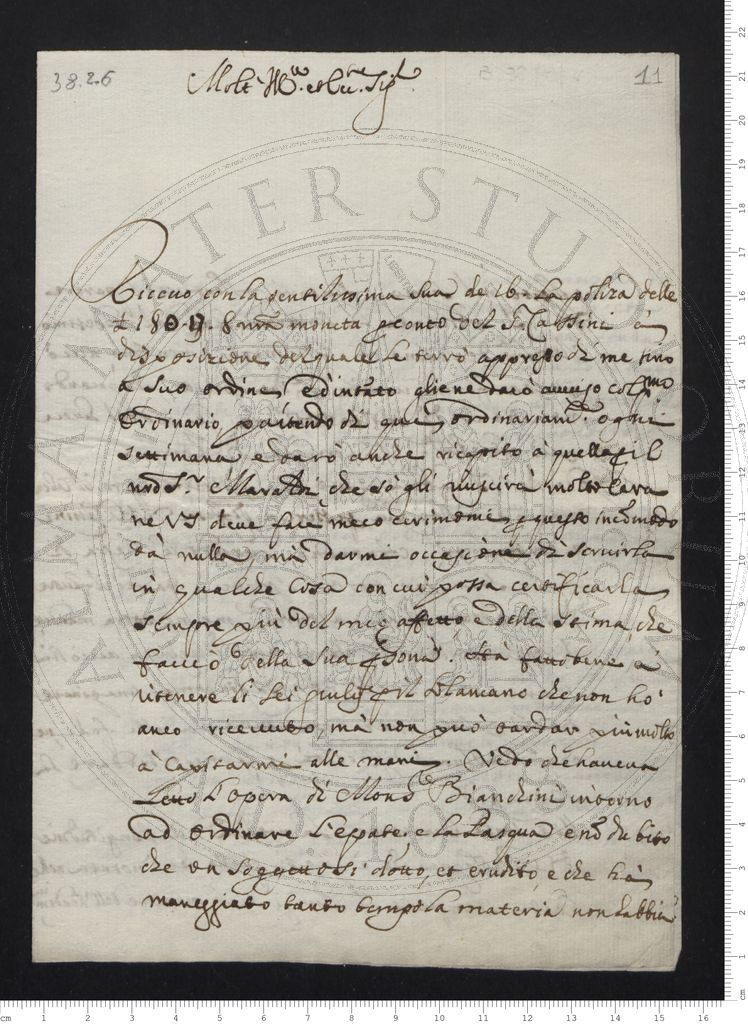 38.2.6
11
Molt' Ill.re et Ecc.te Sig.r
Riceuo con la gentilissima sua de 16. La poliza delle
moneta p conto del S.r Cassini à
disposizione del quale le terrò appresso di me sino
a suo ordine, ed intãto gliene darò auuiso col p.mo
ordinario, partendo di qui ordinariam.te ogni
settimana e darò anche ricapito à quella p il
nr̃o S.r che sò gli riuscirà molto cara
ne VS deue far meco cerimonie p questo incõmodo
dà nulla, mà darmi occasione di seruirla
in qualche cosa con cui possa certificarla
sempre più del mio affetto, e della stima, che
faccio della sua psona. Hà fatto bene à
ritenere li sei giulij p il che non hò
anco riceuuto, mà non può tardar più molto
à capitarmi alle mani. Vedo che haueua
Letto l'opera di Mons.re Bianchini intorno
ad ordinare l'epatte, e la Pasqua e nõ dubito
che un soggetto si dotto, et erudito, e che hà
maneggiato tanto tempo la materia non habbia
ALMA MATER STUDIORUM
A.D. 1088
cm 1 2 3 4 5 6 7 8 9 10 11 12 13 14 15 16
cm 1 2 3 4 5 6 7 8 9 10 11 12 13 14 15 16 17 18 19 20 21 22